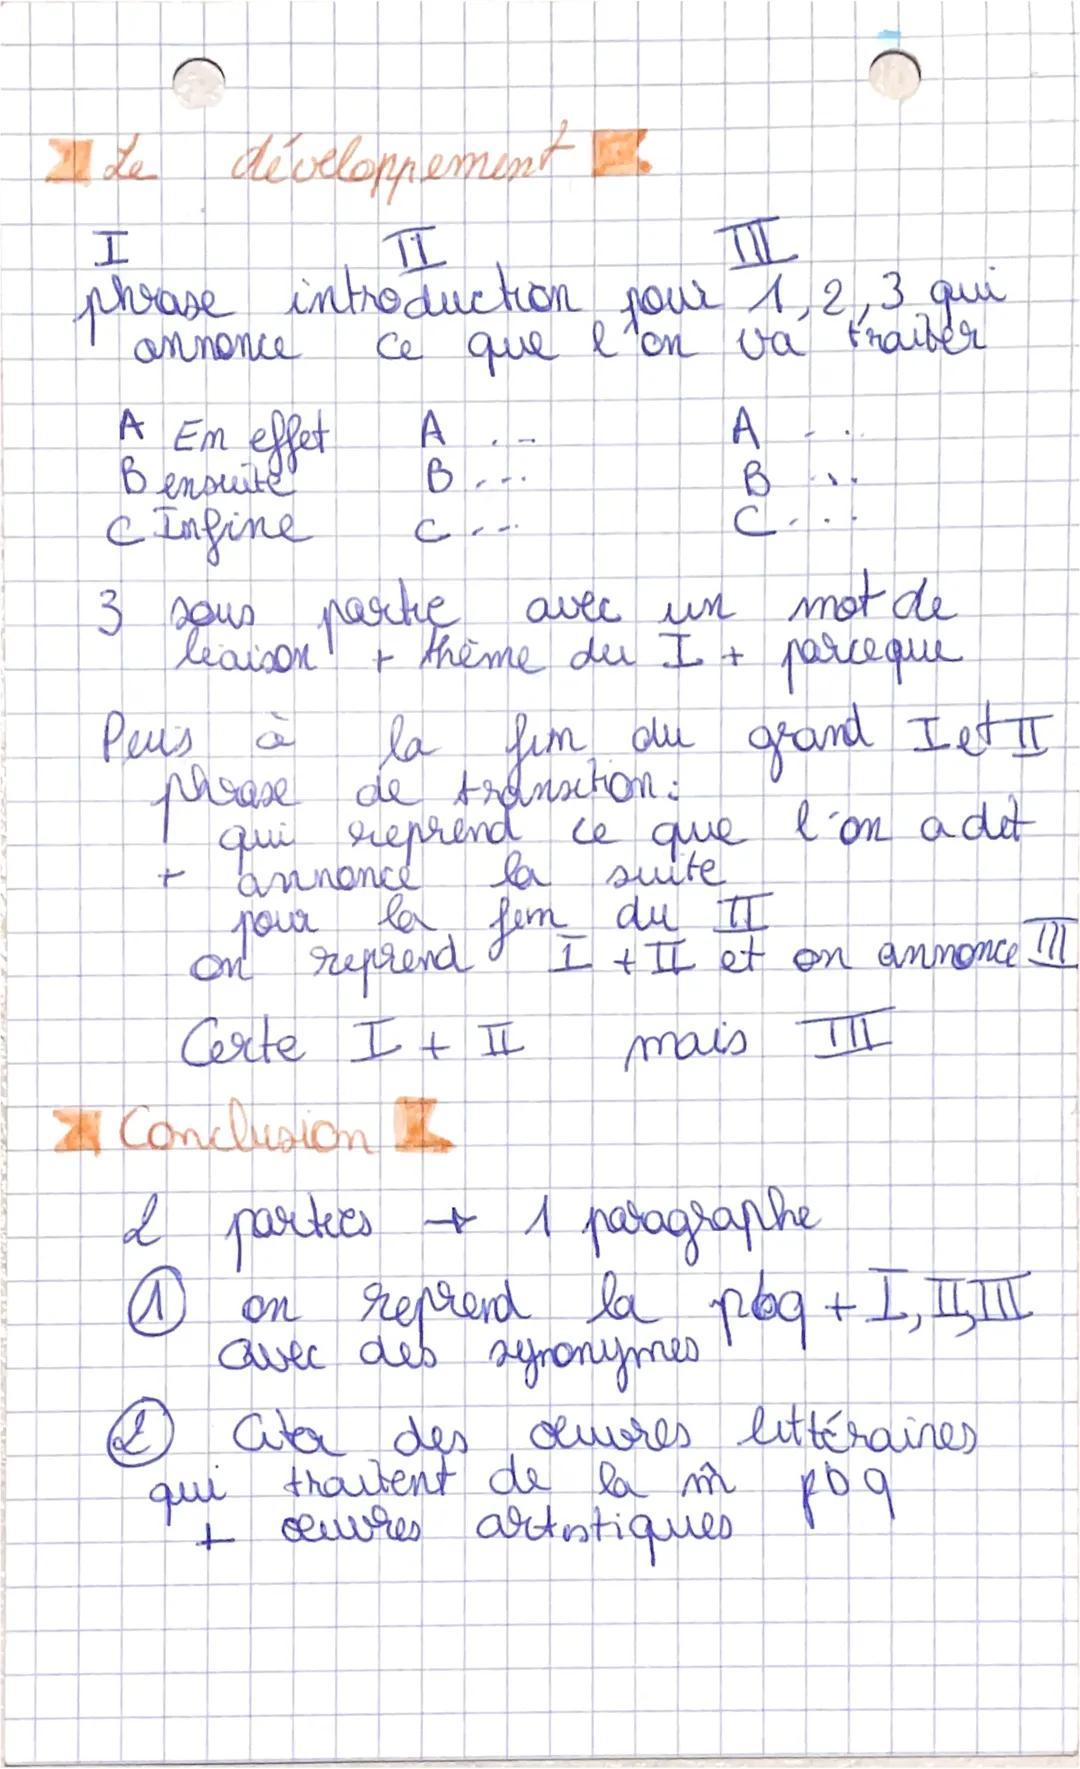 Le développement
I II III
phrase introduction pour 1, 2, 3 qui
annonce ce que l'on va traiter
A En effet A ... A ...
B ensuite B ... B ...
C Infine C ... C ...
3 sous partie avec un mot de
liaison + thème du I + parceque
Puis à la fin du grand I et II
phrase de transition :
qui reprend ce que l'on a dit
+ annonce la suite
pour la fin du II
on reprend I + II et on annonce III
Certe I + II mais III
Conclusion
2 parties → 1 paragraphe
① on reprend la pbq + I, II, III
avec des synonymes
② Citer des œuvres littéraires
qui traitent de la m̂ pbq
+ œuvres artistiques